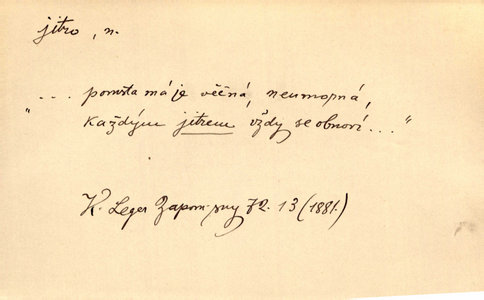 jitro, n.
"... pomsta má je věčná, neumorná,
každým jitrem vždy se obnoví..."
K. Leger Zapom. sny 72. 13 (1881.)